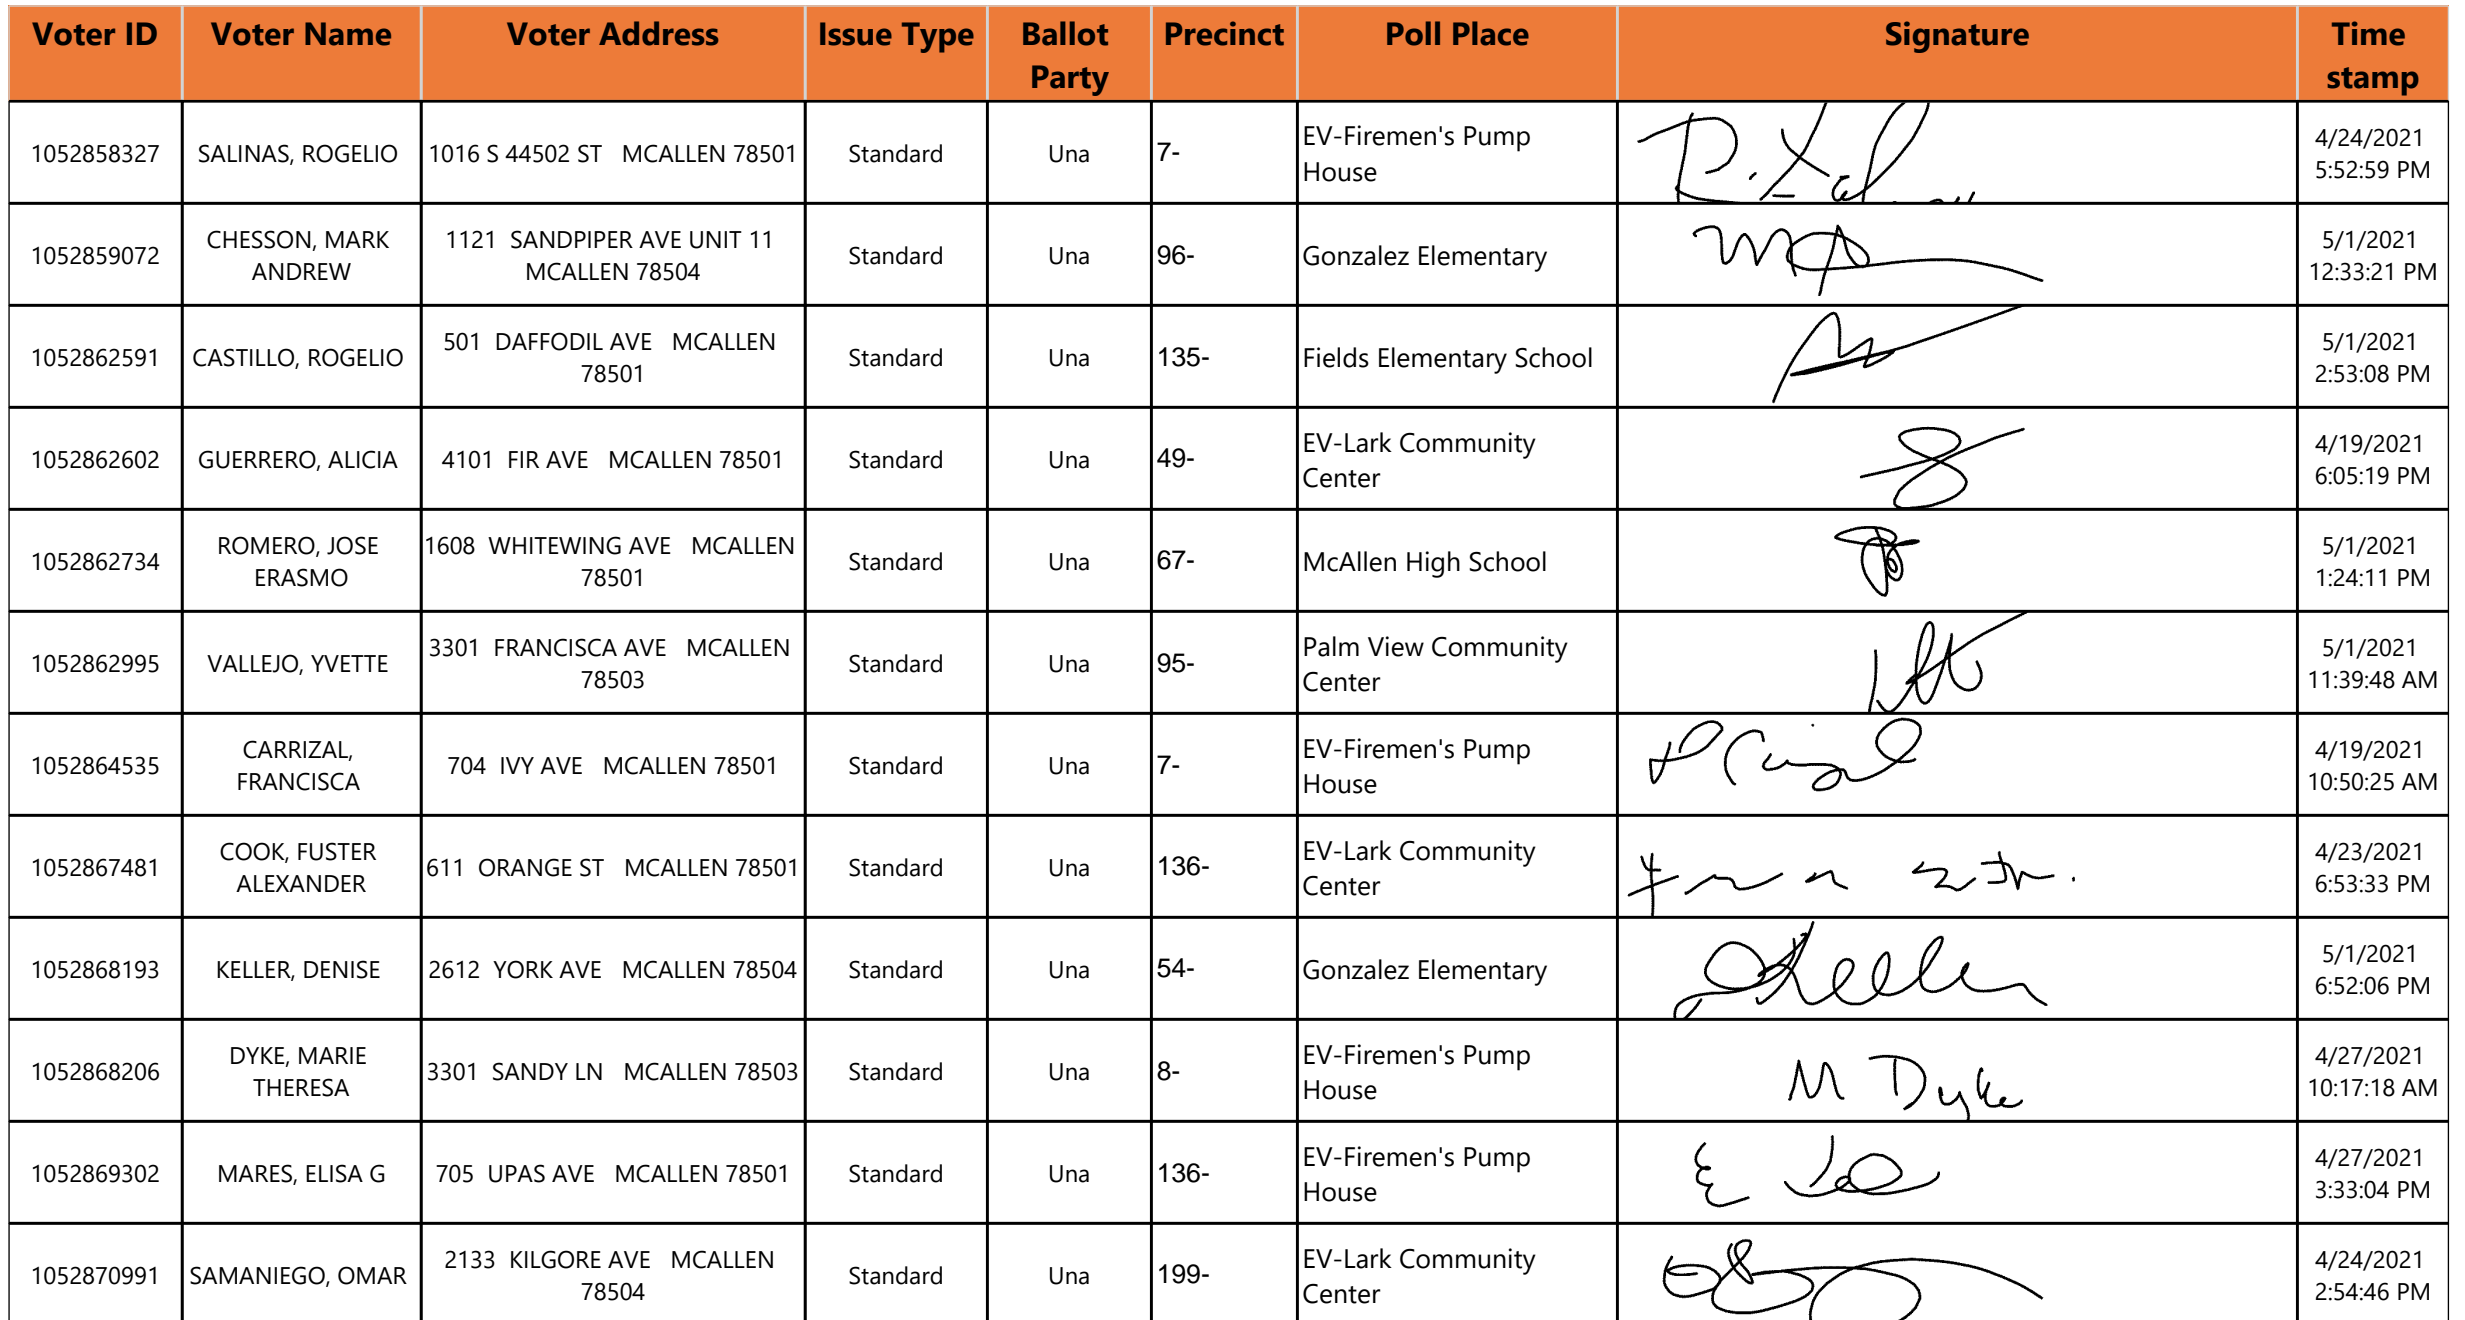 Voter ID Voter Name Voter Address Issue Type Ballot Party Precinct Poll Place Signature Time stamp
1052858327 SALINAS, ROGELIO 1016 S 44502 ST MCALLEN 78501 Standard Una 7- EV-Firemen's Pump House 4/24/2021 5:52:59 PM
1052859072 CHESSON, MARK ANDREW 1121 SANDPIPER AVE UNIT 11 MCALLEN 78504 Standard Una 96- Gonzalez Elementary 5/1/2021 12:33:21 PM
1052862591 CASTILLO, ROGELIO 501 DAFFODIL AVE MCALLEN 78501 Standard Una 135- Fields Elementary School 5/1/2021 2:53:08 PM
1052862602 GUERRERO, ALICIA 4101 FIR AVE MCALLEN 78501 Standard Una 49- EV-Lark Community Center 4/19/2021 6:05:19 PM
1052862734 ROMERO, JOSE ERASMO 1608 WHITEWING AVE MCALLEN 78501 Standard Una 67- McAllen High School 5/1/2021 1:24:11 PM
1052862995 VALLEJO, YVETTE 3301 FRANCISCA AVE MCALLEN 78503 Standard Una 95- Palm View Community Center 5/1/2021 11:39:48 AM
1052864535 CARRIZAL, FRANCISCA 704 IVY AVE MCALLEN 78501 Standard Una 7- EV-Firemen's Pump House 4/19/2021 10:50:25 AM
1052867481 COOK, FUSTER ALEXANDER 611 ORANGE ST MCALLEN 78501 Standard Una 136- EV-Lark Community Center 4/23/2021 6:53:33 PM
1052868193 KELLER, DENISE 2612 YORK AVE MCALLEN 78504 Standard Una 54- Gonzalez Elementary 5/1/2021 6:52:06 PM
1052868206 DYKE, MARIE THERESA 3301 SANDY LN MCALLEN 78503 Standard Una 8- EV-Firemen's Pump House M Dyke 4/27/2021 10:17:18 AM
1052869302 MARES, ELISA G 705 UPAS AVE MCALLEN 78501 Standard Una 136- EV-Firemen's Pump House 4/27/2021 3:33:04 PM
1052870991 SAMANIEGO, OMAR 2133 KILGORE AVE MCALLEN 78504 Standard Una 199- EV-Lark Community Center 4/24/2021 2:54:46 PM